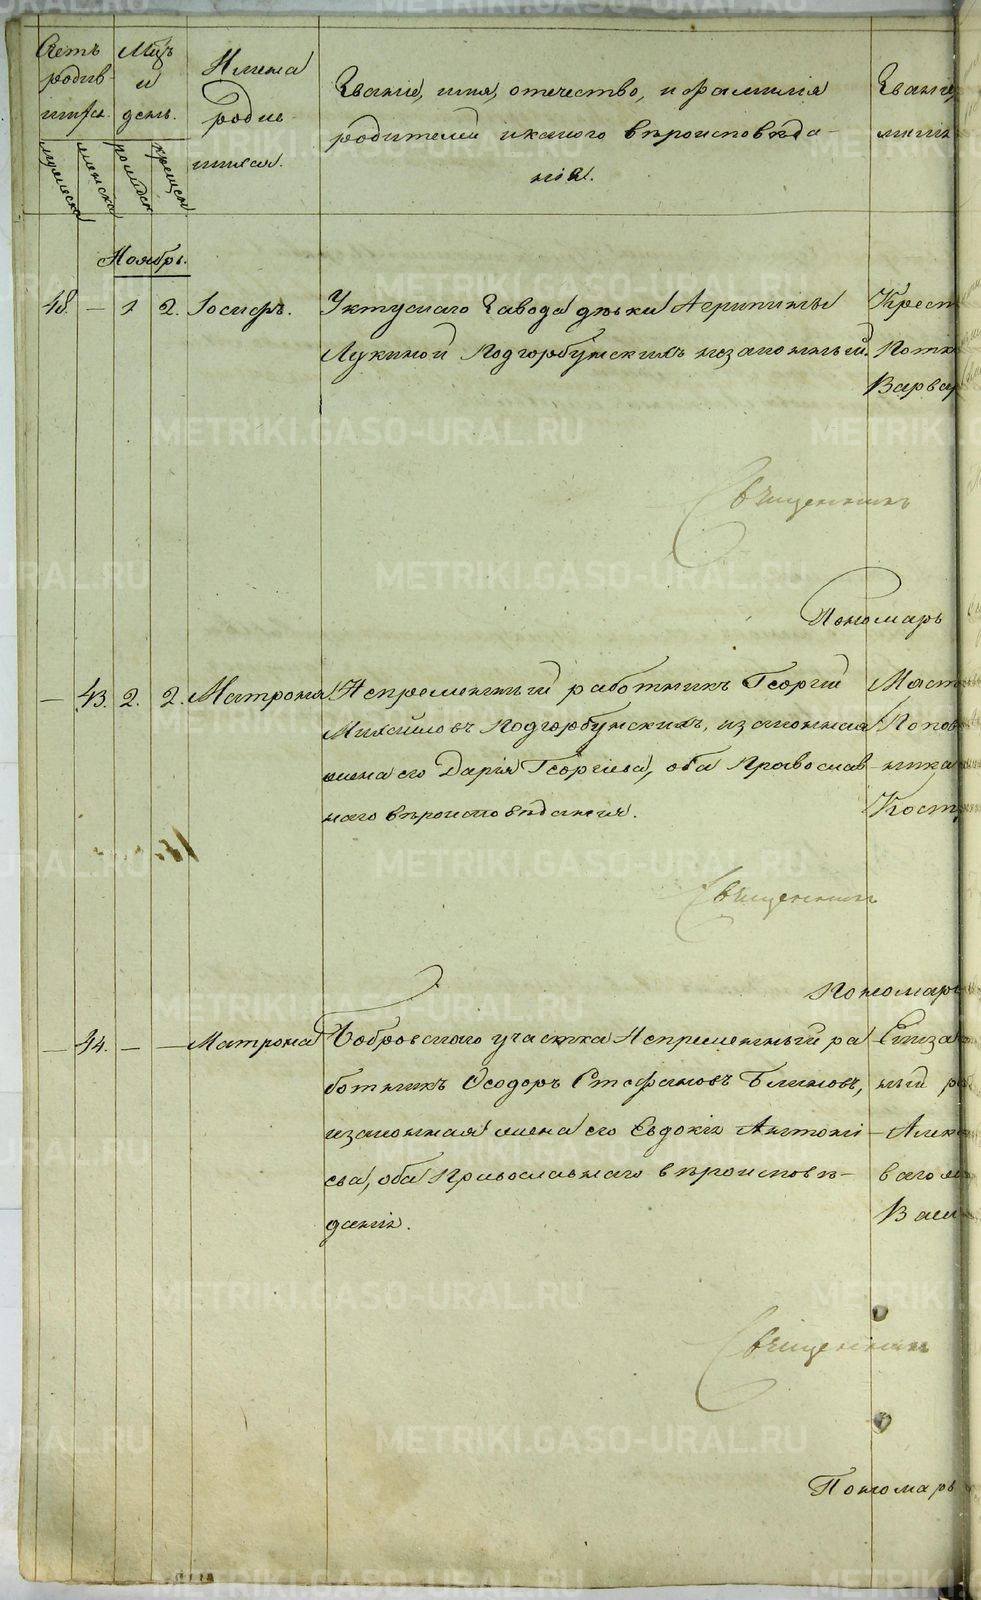 Счетъ родив- шихся.
Мѣс: и день.
Имена родив- шихся.
Званіе, имя, отечество, и фамилія
родителей и какого вѣроисповѣда-
нія.
Званіе,
мужеска
женска
рожден
крещен
Ноябрь.
48. — 1 2. Іосифъ. Уктускаго Завода дѣвки Агрипины Крест
Лукиной Подгорбунскихъ незаконный.
Варвар
Священникъ
Пономарь
— 43. 2. 2. Матрона Непременный работникъ Георгій Маст
Михайловъ Подгорбунскихъ, и законная Попов
жена его Дарья Георгіева, оба Православ- ника
наго вѣроисповѣданія. Кост
Священникъ
Пономарь
— 44. — — Матрона Бобровскаго участка Непременный ра Елиза
ботникъ Ѳеодоръ Стефановъ Блиновъ, ный р
и законная жена его Евдокія Антоні- Алек
ева, оба Православнаго вѣроисповѣ- ваго
данія. Васи
Священникъ
Пономарь
METRIKI.GASO-URAL.RU